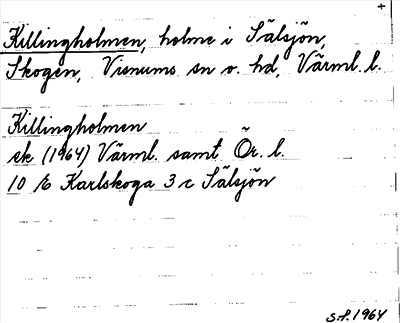 +
Killingholmen, holme i Sälsjön,
Skogen, Visnums sn o. hd, Värml. l.
Killingholmen
ek (1964) Värml. samt Ör. l.
10 E Karlskoga 3 c Sälsjön
S.F. 1964